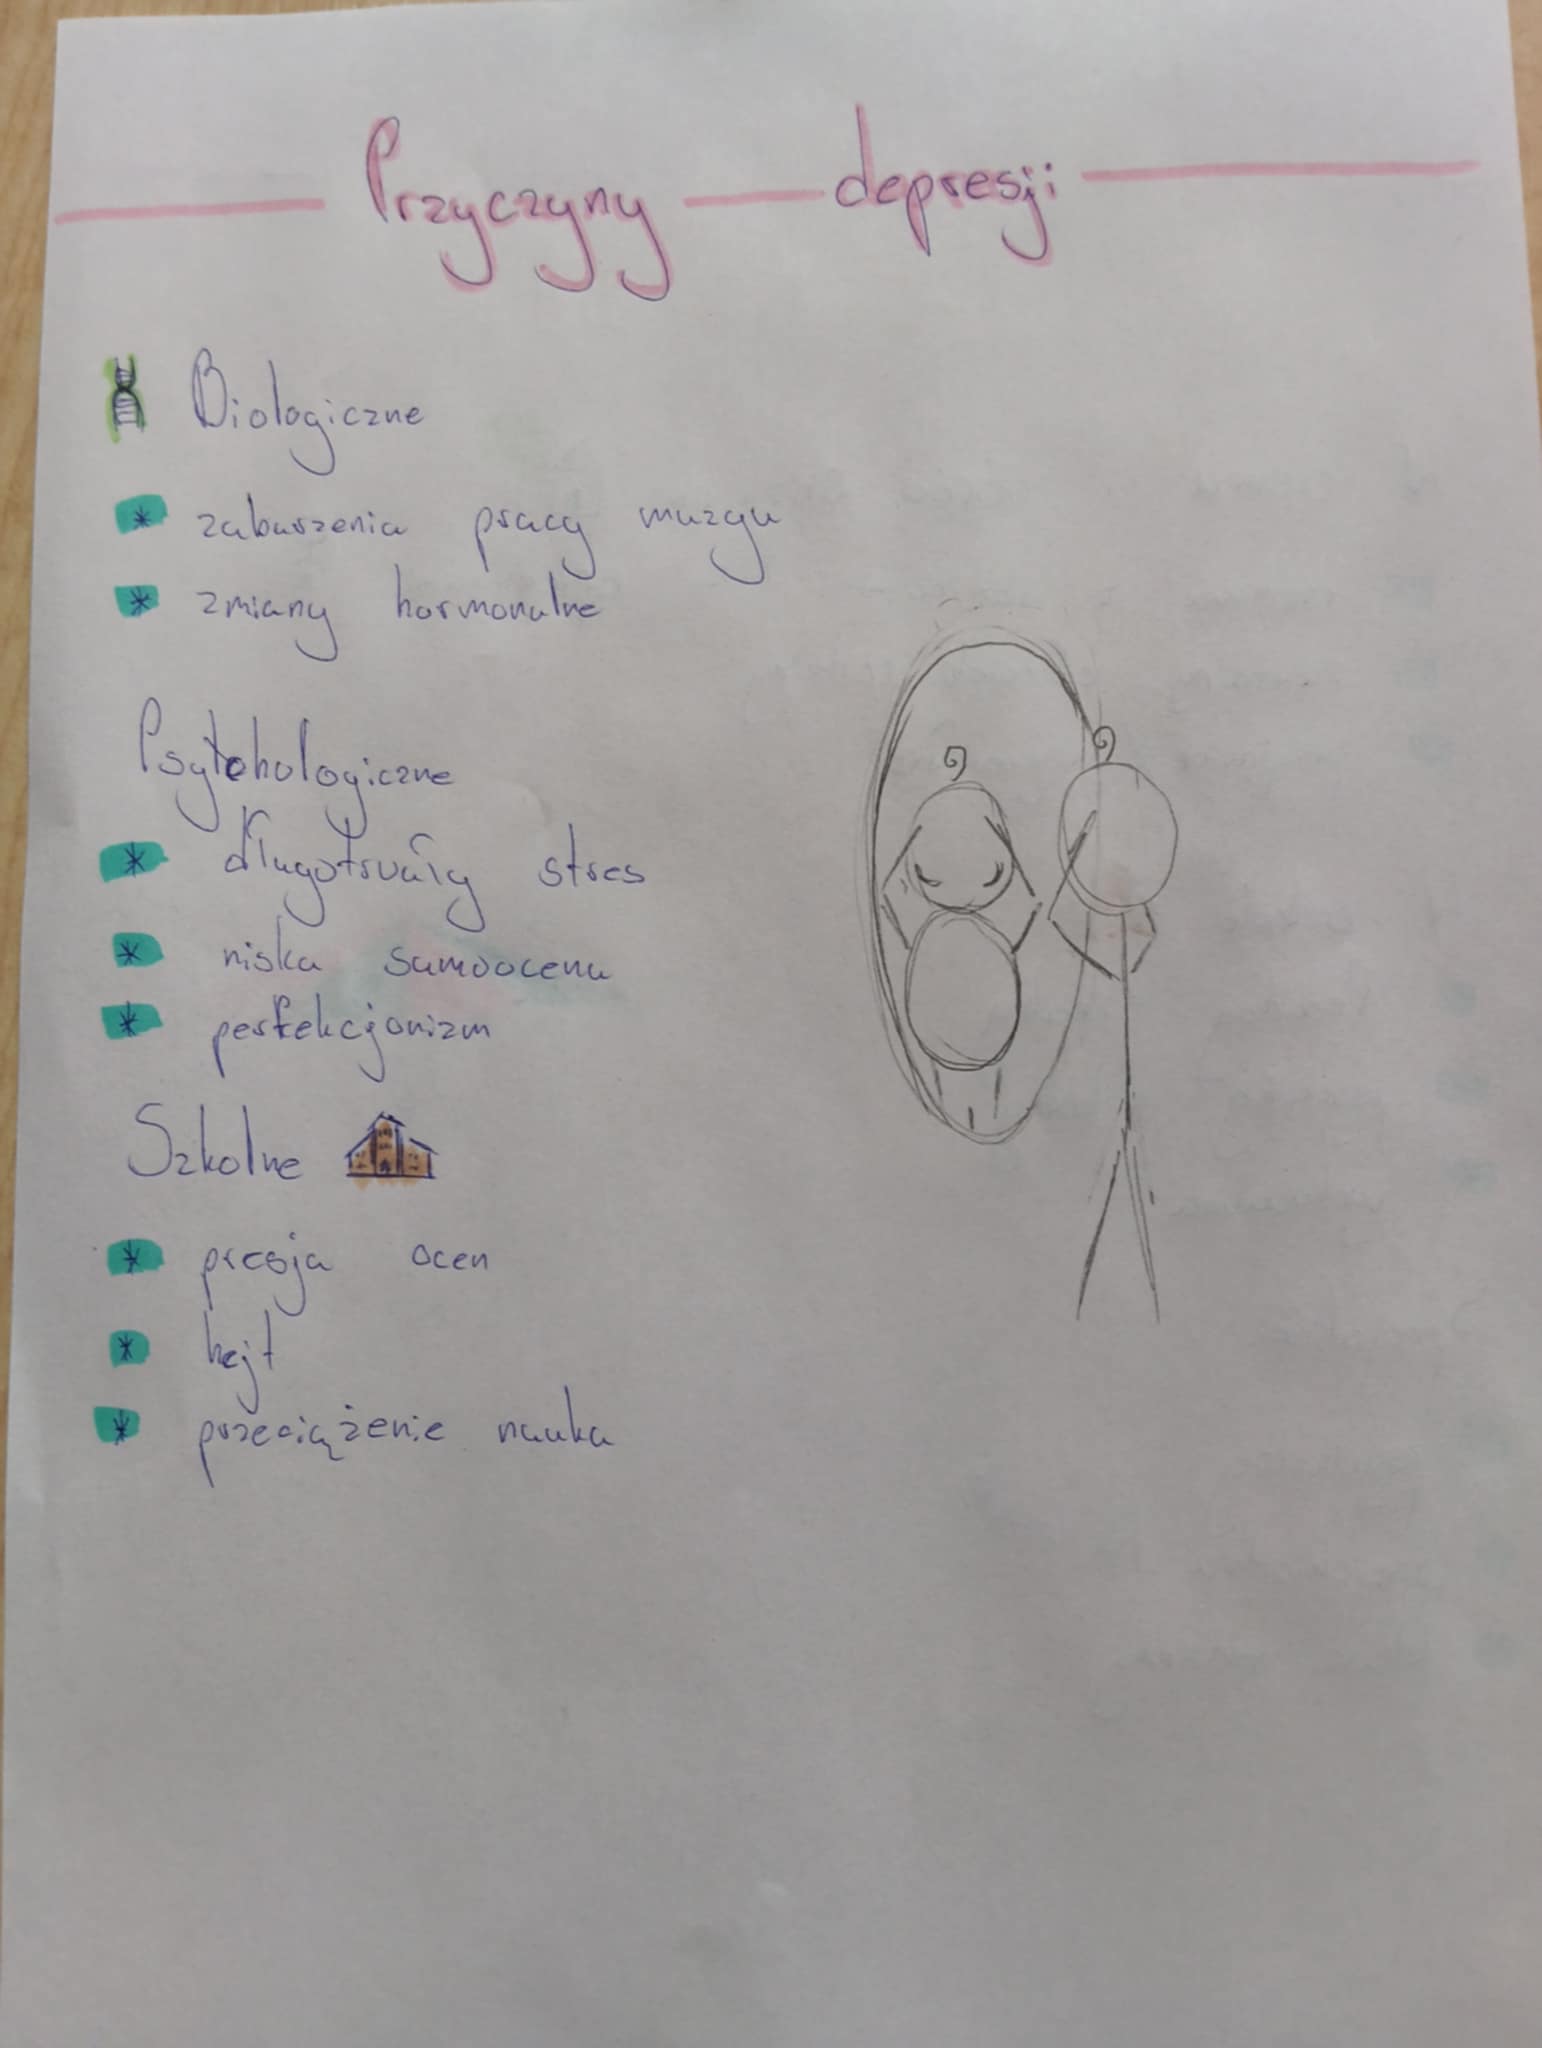 Przyczyny depresji
Biologiczne
* zaburzenia pracy muzgu
* zmiany hormonalne
Psytchologiczne
* długotrwały stres
* niska samoocena
* perfekcjonizm
Szkolne
* presja ocen
* hejt
* przeciążenie nauka